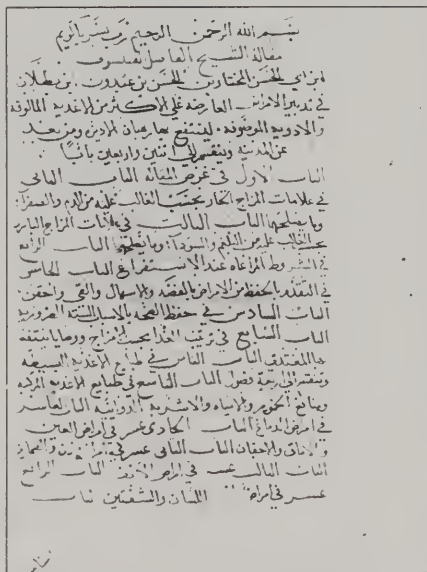 بسم الله الرحمن الرحيم رب يسر يا كريم
مقالة الشيخ الفاضل
لابي الحسن المختار بن الحسن بن عبدون بن بطلان
في تدبير الامراض العارضة علي الاكثر من الاغدية المالوفة
والادوية الموصوفة لينتفع بها رهبان الاديرة ومن بعد
عن المدنية وينقسم الي اثنين واربعين بابا
الباب الاول في غرض المقالة الباب الثاني
في علامات المزاج الحار بحسب الغالب عليه من الدم والصفرا
وما يصلحها الباب الثالث في علامات المزاج البارد
بحسب الغالب عليه من البلغم والسودا وما يصلحها الباب الرابع
في الشروط المراعاة عند الاستفراغ الباب الخامس
في التقدم بالحفظ من الامراض بالفصد والاسهال والقي والحقن
الباب السادس في حفظ الصحة بالاسباب الستة الضرورية
الباب السابع في ترتيب الغدا بحسب المزاج ووصايا ينتفع
بها المغتدي الباب الثامن في طبايع الاغدية البسيطة
وينقسم الي اربعة فصول الباب التاسع في طبايع الاغدية المركبة
ومنافع اللحوم والالبان والاشربة الدوائية الباب العاشر
في امراض الدماغ الباب الحادي عشر في امراض العين
والاماق والاجفان الباب الثاني عشر في
الباب الثالث عشر في امراض الانف الباب الرابع
عشر في امراض اللسان والشفتين باب